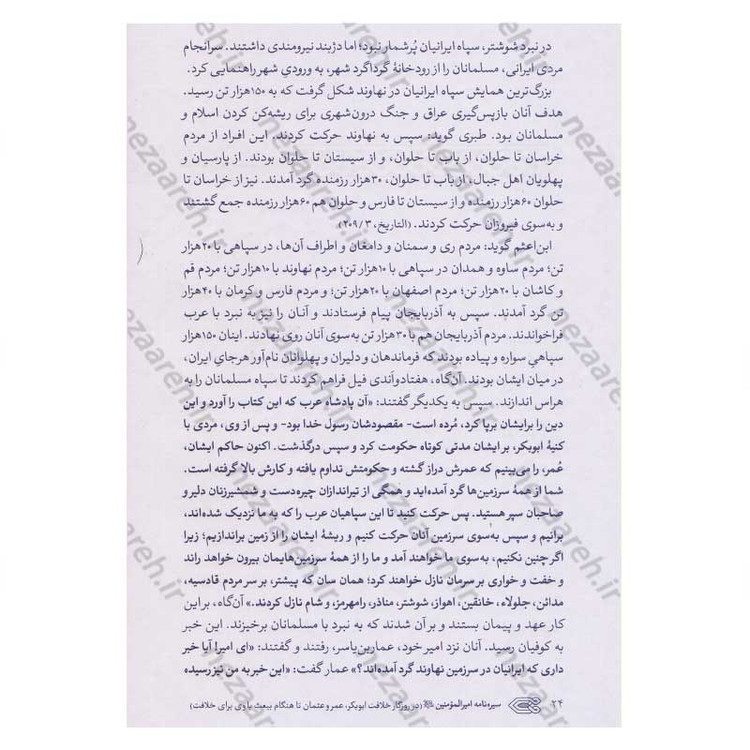 در نبرد شوشتر، سپاه ایرانیان پُرشمار نبود؛ اما دژبند نیرومندی داشتند. سرانجام
مردی ایرانی، مسلمانان را از رودخانهٔ گرداگرد شهر، به ورودیِ شهر راهنمایی کرد.
بزرگ‌ترین همایش سپاه ایرانیان در نهاوند شکل گرفت که به ۱۵۰هزار تن رسید.
هدف آنان بازپس‌گیری عراق و جنگ درون‌شهری برای ریشه‌کن کردن اسلام و
مسلمانان بود. طبری گوید: سپس به نهاوند حرکت کردند. این افراد از مردم
خراسان تا حلوان، از باب تا حلوان، و از سیستان تا حلوان بودند. از پارسیان و
پهلویان اهل جبال، از باب تا حلوان، ۳۰هزار رزمنده گرد آمدند. نیز از خراسان تا
حلوان ۶۰هزار رزمنده و از سیستان تا فارس و حلوان هم ۶۰هزار رزمنده جمع گشتند
و به‌سوی فیروزان حرکت کردند. (التاریخ، ۳/ ۲۰۹)
ابن‌اعثم گوید: مردم ری و سمنان و دامغان و اطراف آن‌ها، در سپاهی با ۲۰هزار
تن؛ مردم ساوه و همدان در سپاهی با ۱۰هزار تن؛ مردم نهاوند با ۱۰هزار تن؛ مردم قم
و کاشان با ۲۰هزار تن؛ مردم اصفهان با ۲۰هزار تن؛ و مردم فارس و کرمان با ۴۰هزار
تن گرد آمدند. سپس به آذربایجان پیام فرستادند و آنان را نیز به نبرد با عرب
فراخواندند. مردم آذربایجان هم با ۳۰هزار تن به‌سوی آنان روی نهادند. اینان ۱۵۰هزار
سپاهیِ سواره و پیاده بودند که فرماندهان و دلیران و پهلوانان نام‌آور هرجای ایران،
در میان ایشان بودند. آن‌گاه، هفتادواَندی فیل فراهم کردند تا سپاه مسلمانان را به
هراس اندازند. سپس به یکدیگر گفتند: «آن پادشاه عرب که این کتاب را آورد و این
دین را برایشان برپا کرد، مُرده است- مقصودشان رسول خدا بود- و پس از وی، مردی با
کنیهٔ ابوبکر، بر ایشان مدتی کوتاه حکومت کرد و سپس درگذشت. اکنون حاکم ایشان،
عُمَر، را می‌بینیم که عمرش دراز گشته و حکومتش تداوم یافته و کارش بالا گرفته است.
شما از همهٔ سرزمین‌ها گرد آمده‌اید و همگی از تیراندازان چیره‌دست و شمشیرزنان دلیر و
صاحبان سپر هستید. پس حرکت کنید تا این سپاهیان عرب را که به ما نزدیک شده‌اند،
برانیم و سپس به‌سوی سرزمین آنان حرکت کنیم و ریشهٔ ایشان را از زمین براندازیم؛ زیرا
اگر چنین نکنیم، به‌سوی ما خواهند آمد و ما را از همهٔ سرزمین‌هایمان بیرون خواهد راند
و خفت و خواری بر سرمان نازل خواهند کرد؛ همان سان که پیشتر، بر سر مردم قادسیه،
مدائن، جلولاء، خانقین، اهواز، شوشتر، مناذر، رامهرمز، و شام نازل کردند.» آن‌گاه، بر این
کار عهد و پیمان بستند و بر آن شدند که به نبرد با مسلمانان برخیزند. این خبر
به کوفیان رسید. آنان نزد امیر خود، عماربن‌یاسر، رفتند و گفتند: «ای امیر! آیا خبر
داری که ایرانیان در سرزمین نهاوند گرد آمده‌اند؟» عمار گفت: «این خبر به من نیز رسیده
۲۴ سیره‌نامه امیرالمؤمنین (در روزگار خلافت ابوبکر، عمر و عثمان تا هنگام بیعت با وی برای خلافت)
nezaareh.ir